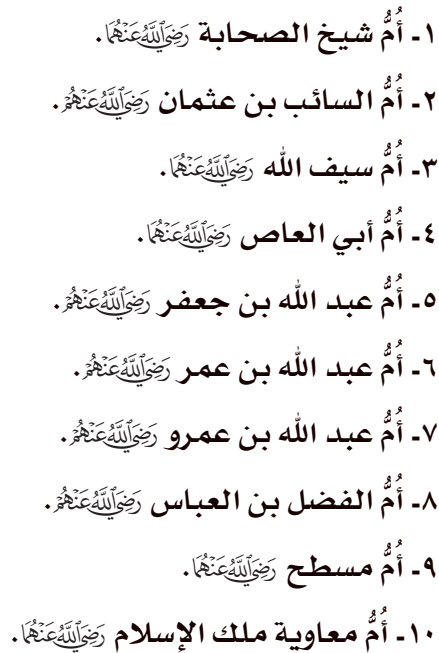 ١- أُمُّ شيخ الصحابة رَضِيَ اللَّهُ عَنْهُمَا.
٢- أُمُّ السائب بن عثمان رَضِيَ اللَّهُ عَنْهُمْ.
٣- أُمُّ سيف الله رَضِيَ اللَّهُ عَنْهُمَا.
٤- أُمُّ أبي العاص رَضِيَ اللَّهُ عَنْهُمَا.
٥- أُمُّ عبد الله بن جعفر رَضِيَ اللَّهُ عَنْهُمْ.
٦- أُمُّ عبد الله بن عمر رَضِيَ اللَّهُ عَنْهُمْ.
٧- أُمُّ عبد الله بن عمرو رَضِيَ اللَّهُ عَنْهُمْ.
٨- أُمُّ الفضل بن العباس رَضِيَ اللَّهُ عَنْهُمْ.
٩- أُمُّ مسطح رَضِيَ اللَّهُ عَنْهُمَا.
١٠- أُمُّ معاوية ملك الإسلام رَضِيَ اللَّهُ عَنْهُمَا.